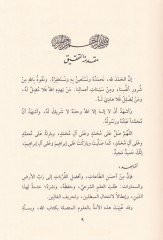 مقدمة التحقيق
إنَّ الحَمْدَ لله، نحمدُه ونستعينُه ونستغفِرُه، ونعوذُ باللهِ مِنْ
شُرورِ أنفُسِنا، ومِنْ سَيِّئاتِ أعمالِنا، مَنْ يَهْدِهِ اللهُ فلا مُضِلَّ لَهُ،
ومَنْ يُضْلِلْ فلا هادِيَ لَهُ.
وأشهَدُ أنْ لا إلهَ إلا اللهُ وحدَهُ لا شريكَ لَهُ، وأشهَدُ أنَّ
مُحمَّداً عبدُهُ ورسُولُهُ.
اللَّهُمَّ صَلِّ على مُحمَّدٍ، وعلى آلِ مُحمَّدٍ، وبارِكْ على مُحمَّدٍ
وعلى آلِ مُحمَّدٍ، كما صلَّيتَ وبارَكْتَ على إبراهيمَ، وعلى آلِ إبراهيمَ،
إنَّكَ حَميدٌ مَجيدٌ
أمَّا بعد:
فإنَّ مِنْ أحسنِ الطاعات، وأفضلِ القُرُباتِ إلى ربِّ الأرضِ
والسماوات: طلبَ العلمِ الشرعيِّ، وحفظَهُ، ونشرَهُ، خدمةً لهذا
الدين،
٩